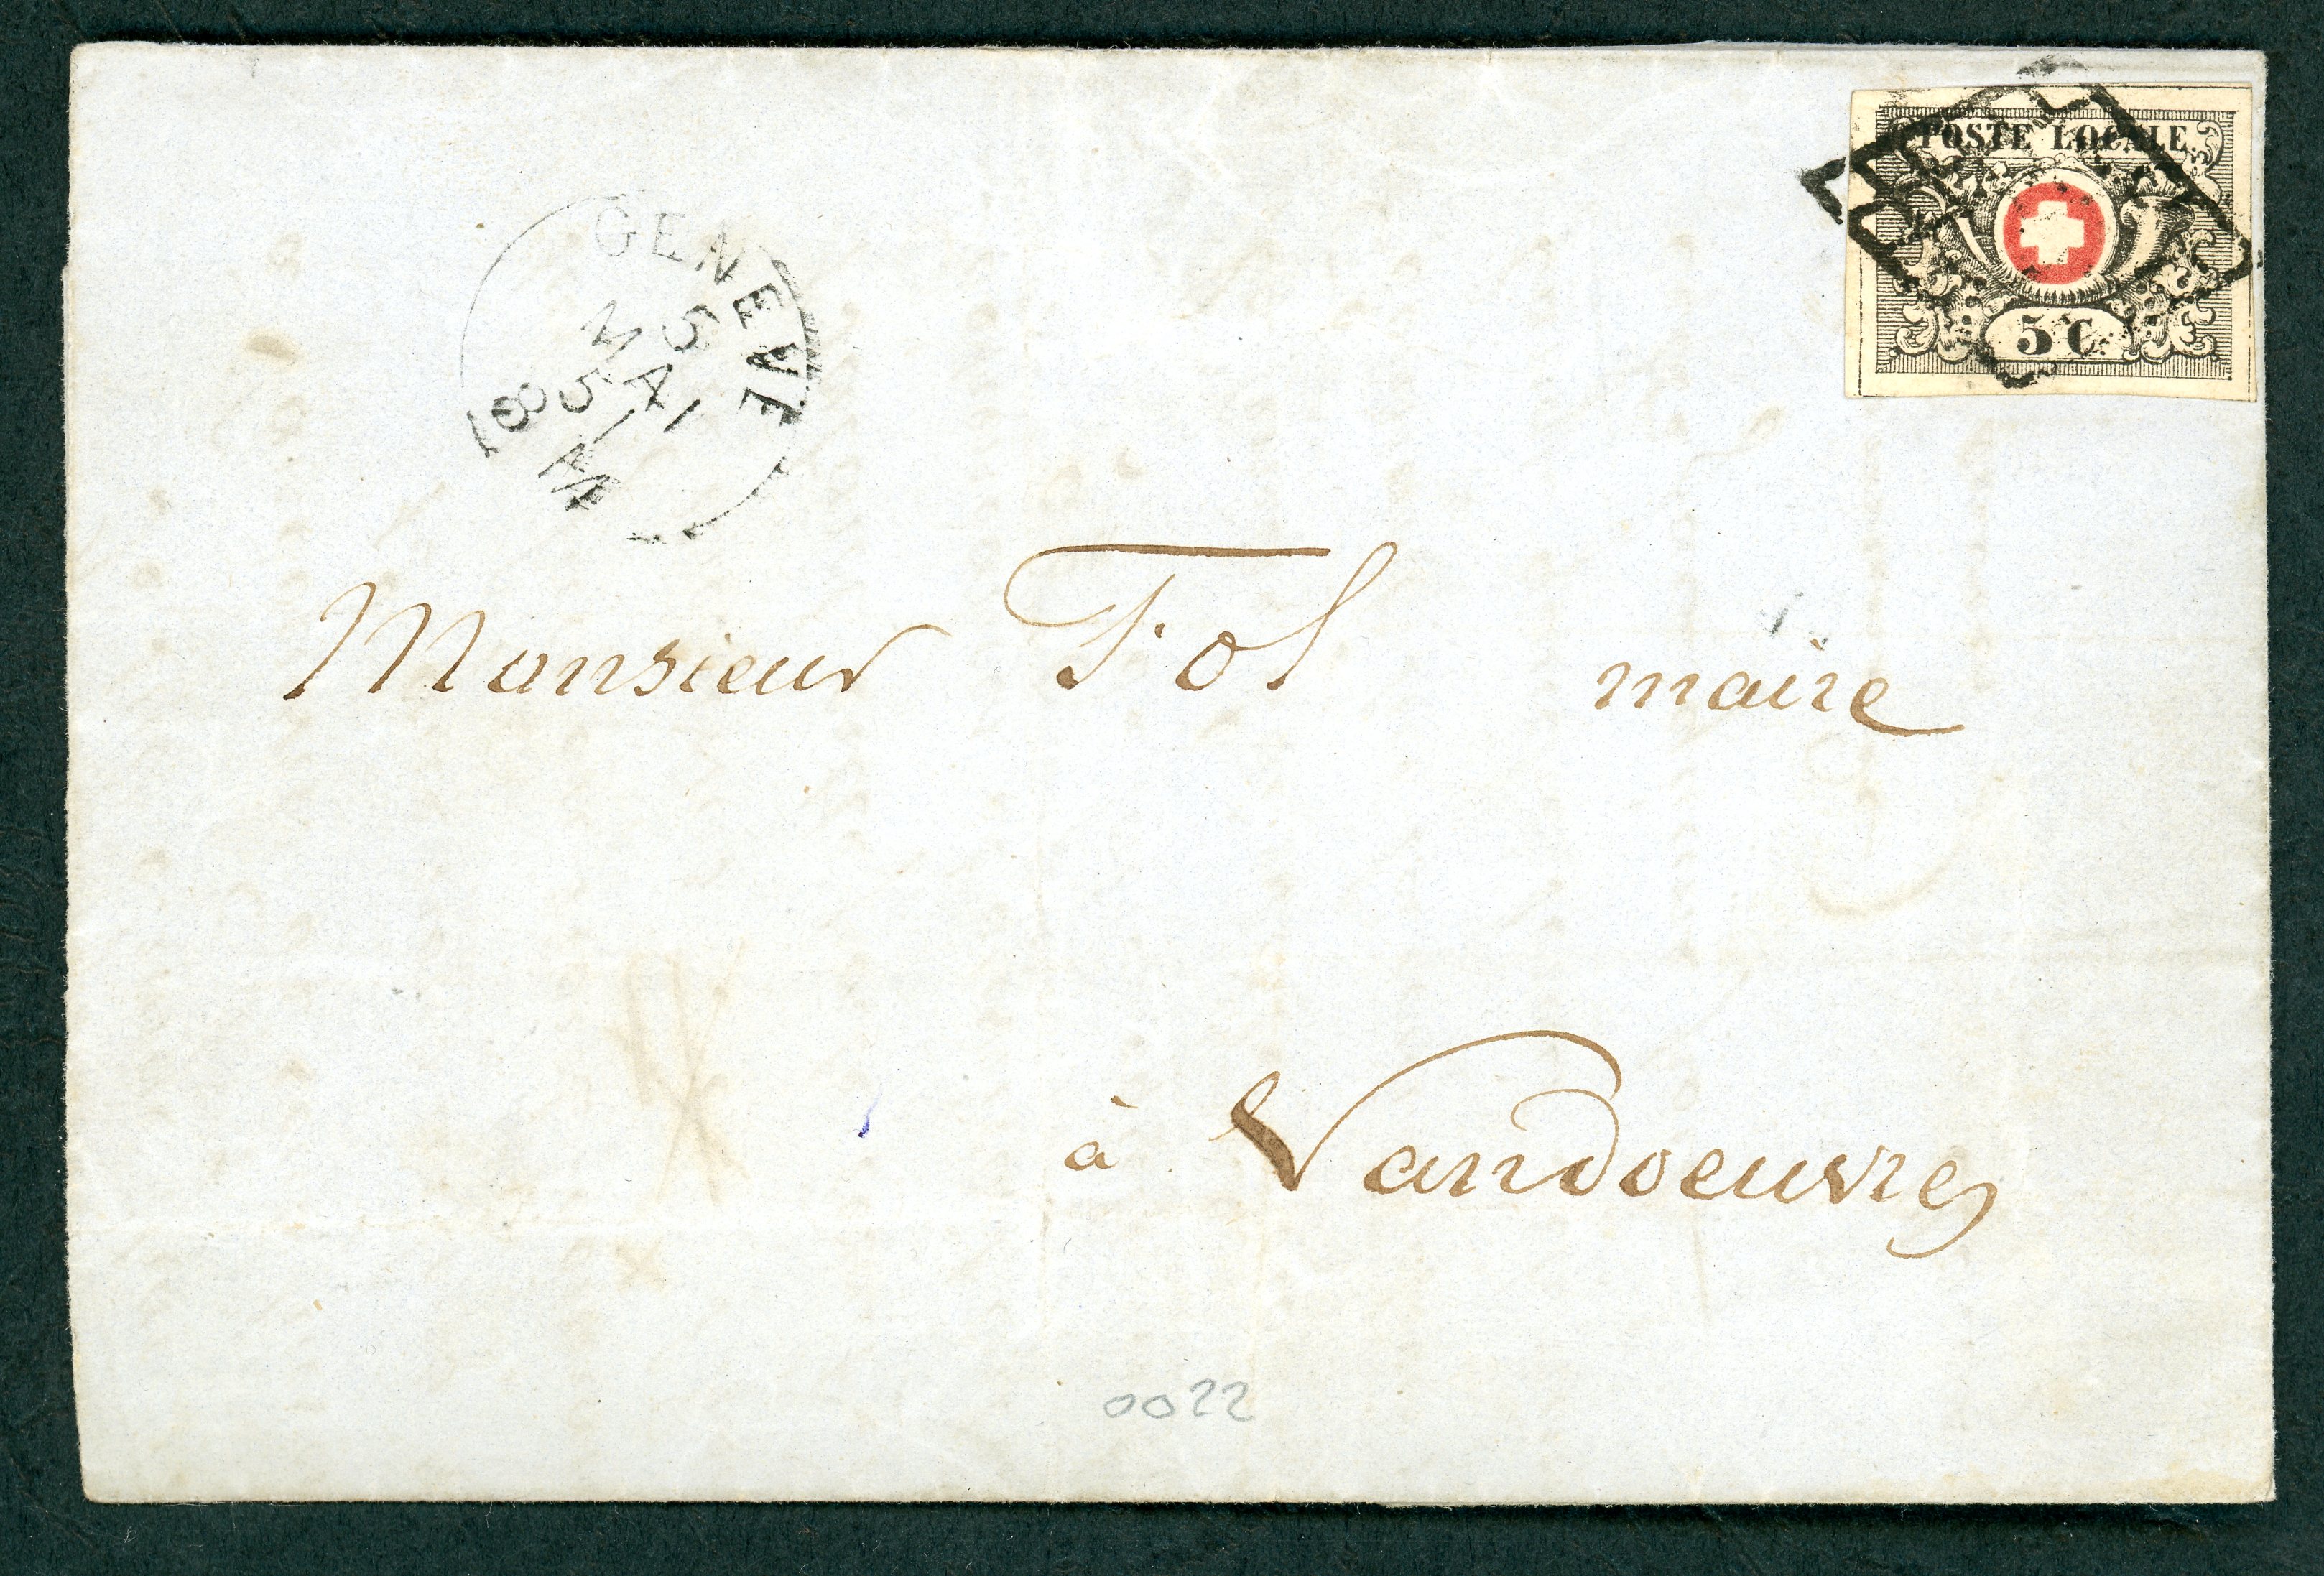 POSTE LOCALE
5 C
GENEVE
5
MAI
51
M
18
Monsieur Fol maire
à Vandoeuvres
0022